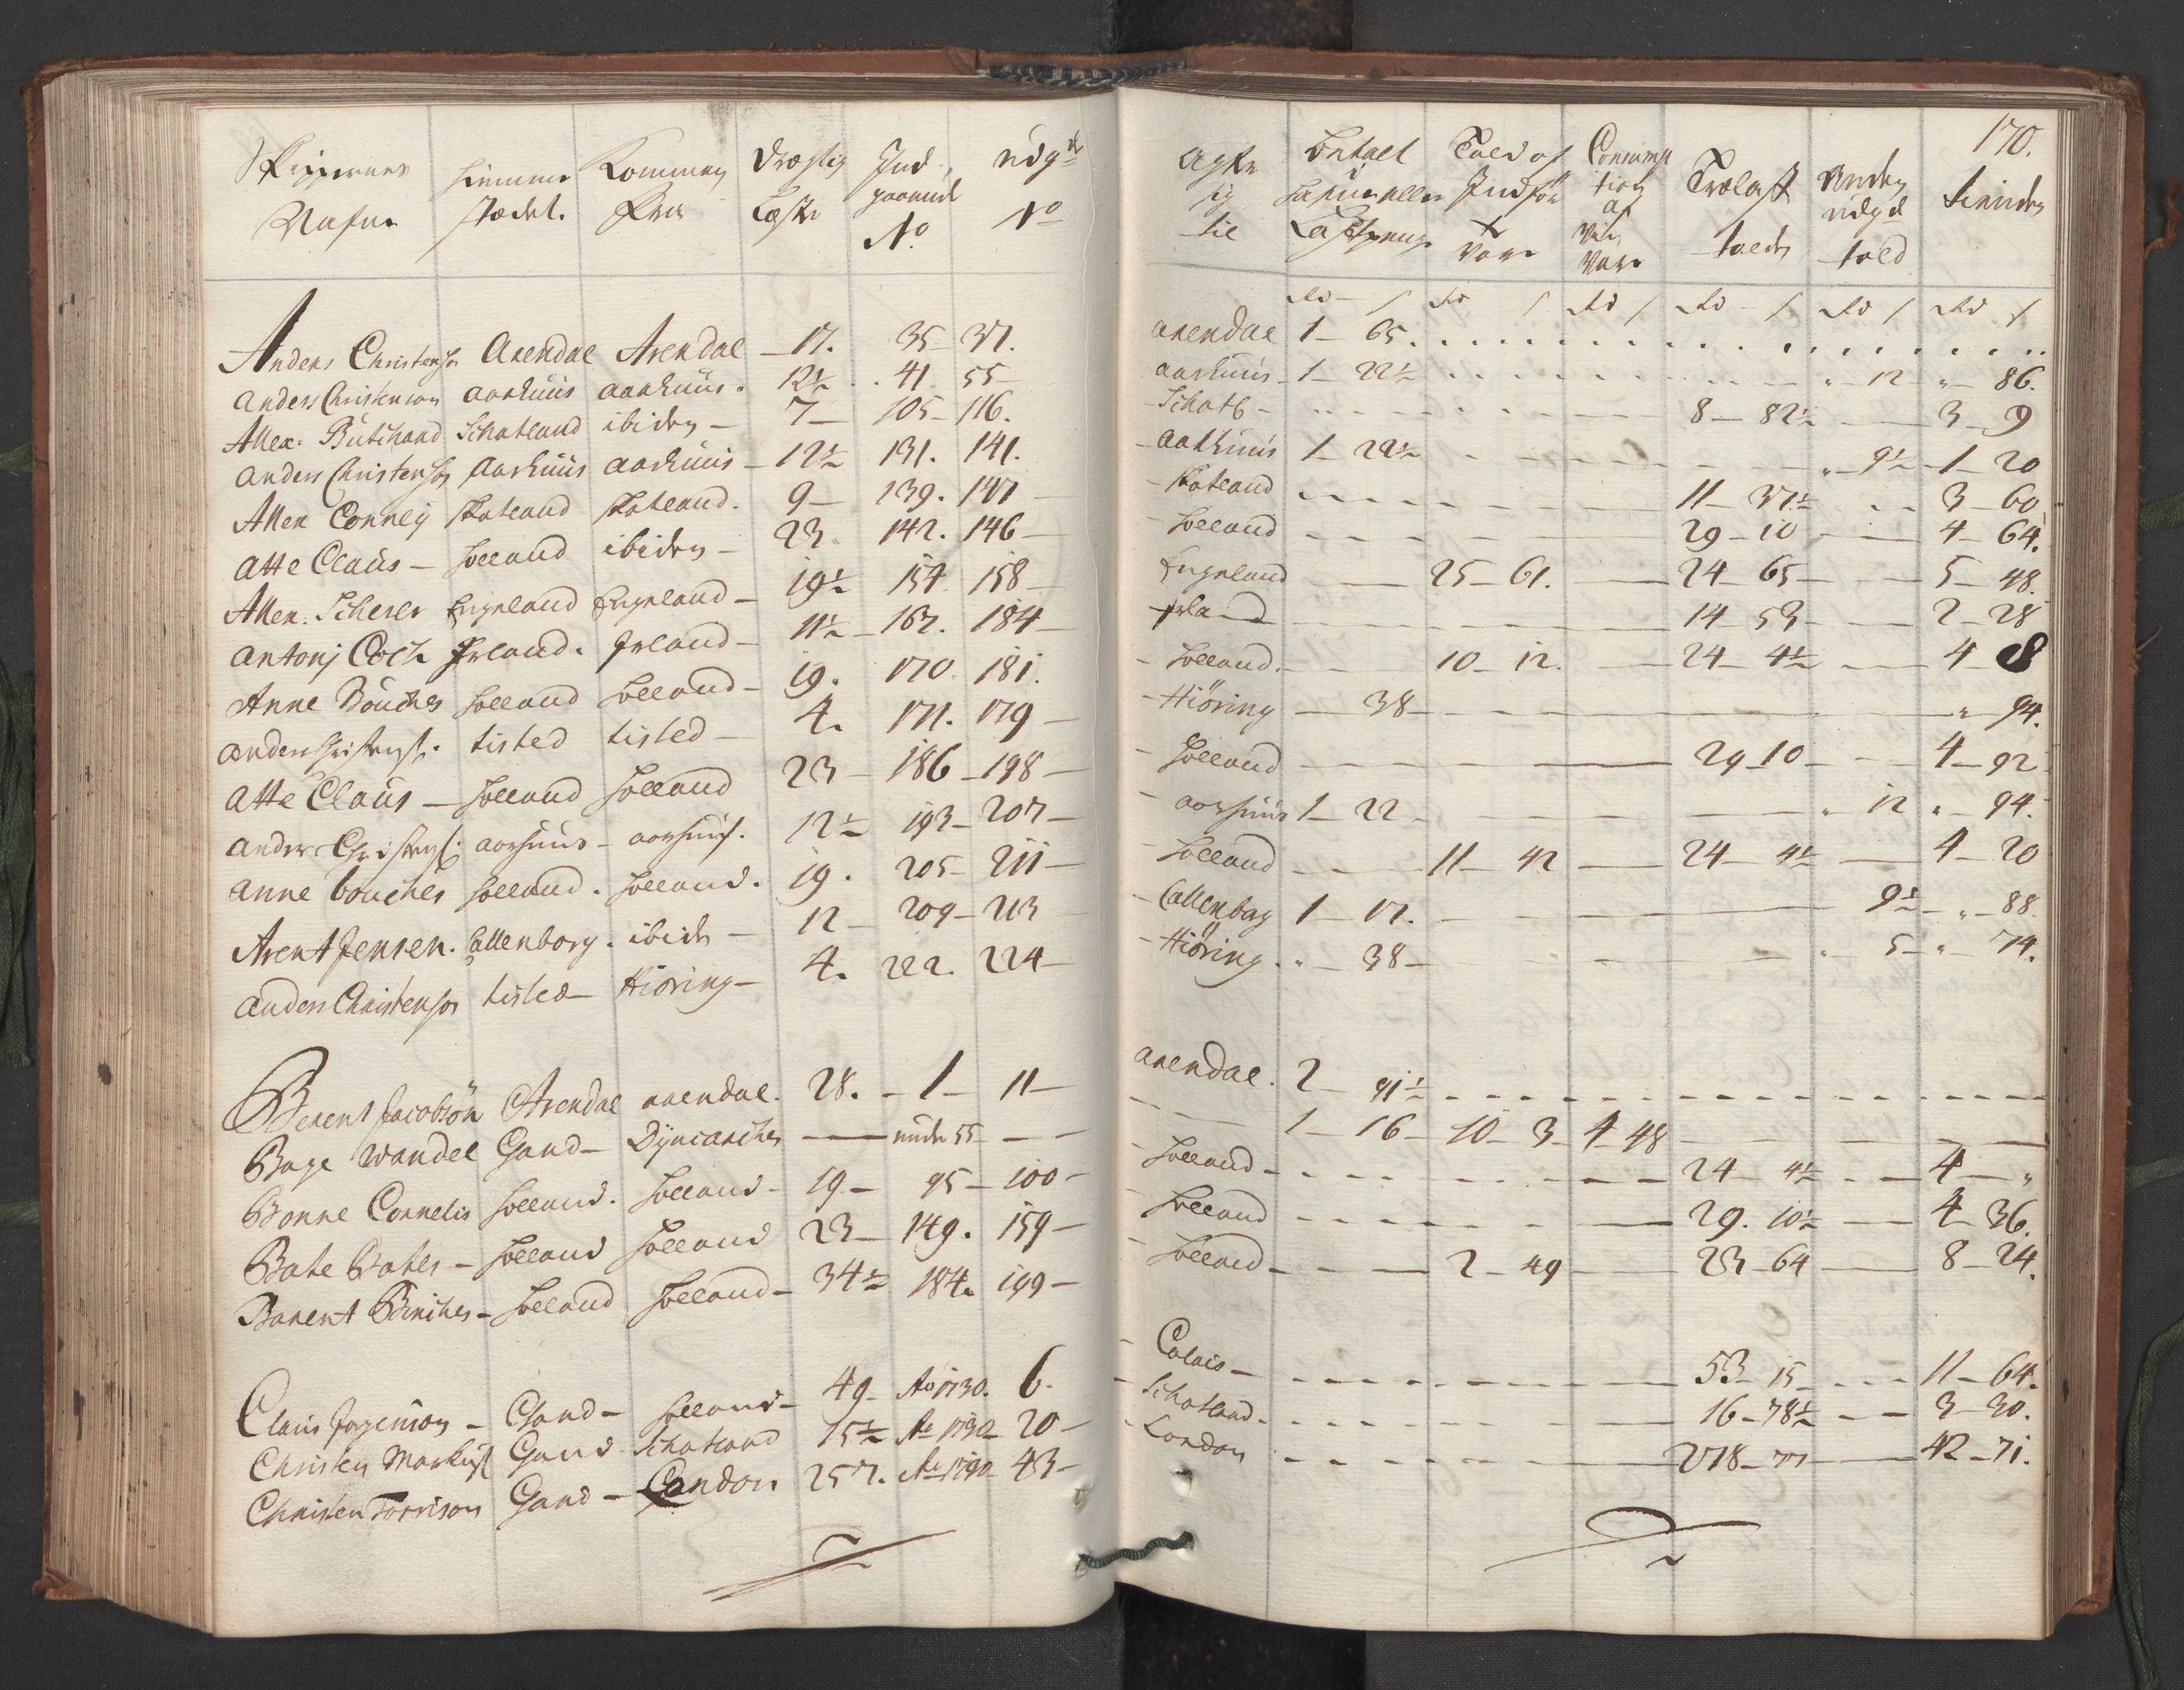 Skippernes Nafne
Hiemme stædet.
Kommen Fra
Drægtig Læster
Ind gaaende No
udgde No
Anders Christensen Arendal Arendal 17. 35 37.
Anders Christenson Aarhuus Aarhuus. 12½ 41 55
Allex: Butchand Schotland ibidem 7 105 116.
Anders Christensen Aarhuus Aarhuus 12½ 131. 141.
Allex Conney Skotland Skotland. 9 139. 147
Atte Claus Holland ibidem 23 142. 146
Allex. Scherer Engeland Engeland 19½ 157 158
Antonj Coch Irland. Irland 11½ 167. 184
Anne Bouches Holland Holland 19. 170. 181.
Anders Christens. tisted tisted 4. 171. 179
Atte Claus Holland Holland 23 186 198
Anders Christens. Aarhuus aarhuus. 12½ 193 207
Anne bouches Holland. Holland. 19. 205 211
Arent Jensen. Callenborg. ibidem 12 209 213
Anders Christensen tisted Hiöring 4. 222. 224
Berent Jacobsön Arendal arendal. 28. 1 11
Boye Wandel Gand Dynckarchen under 55
Bonne Cornelis Holland. Holland 19 95 100
Bate Bates Holland Holland 23 149. 159
Barent Binches Holland Holland 34½ 184. 199
Claus Jörgenson Gand Holland 49 Ao 1730. 6.
Christen Gand Schotland 15½ Ao 1730 20
Christen Torrison Gand London 257. Ao 1730 43
170.
agter sig til
betalt
Told af Indför te Vare
Consumption af Vare
Trælast tolden
Anden udgd told
Tienden
Rd / Rd / Rd / Rd / Rd / Rd /
Arendal 1 65.
Aarhuus 1 22½ " 12 " 86.
Schotl 8 82½ 3 9
Aarhuus 1 22½ " 9½ 1 20
Skotland 11 37½ 3 60
Holland 29 10 4 64.
Engeland 25 61. 24 65 5 48.
Irland 14 53 2 28
Holland. 10 12. 24 4½ 4 8
Hiöring 38 " 94.
Holland 29 10 4 92
aarhuus 1 22 " 12 " 94.
Holland 11 42 24 4½ 4 20
Callenborg 1 17. 9½ " 88
Hiöring. " 38 " 5 " 74.
arendal. 2 91½
1 16 10 3 4 48
Holland 24 4½ 4 "
Holland 29. 10½ 4 36.
Holland 2 49 23 64 8 24.
Calais 53 15 11 64.
Schotland 16 78½ 3 30.
London 278 77 42 71.